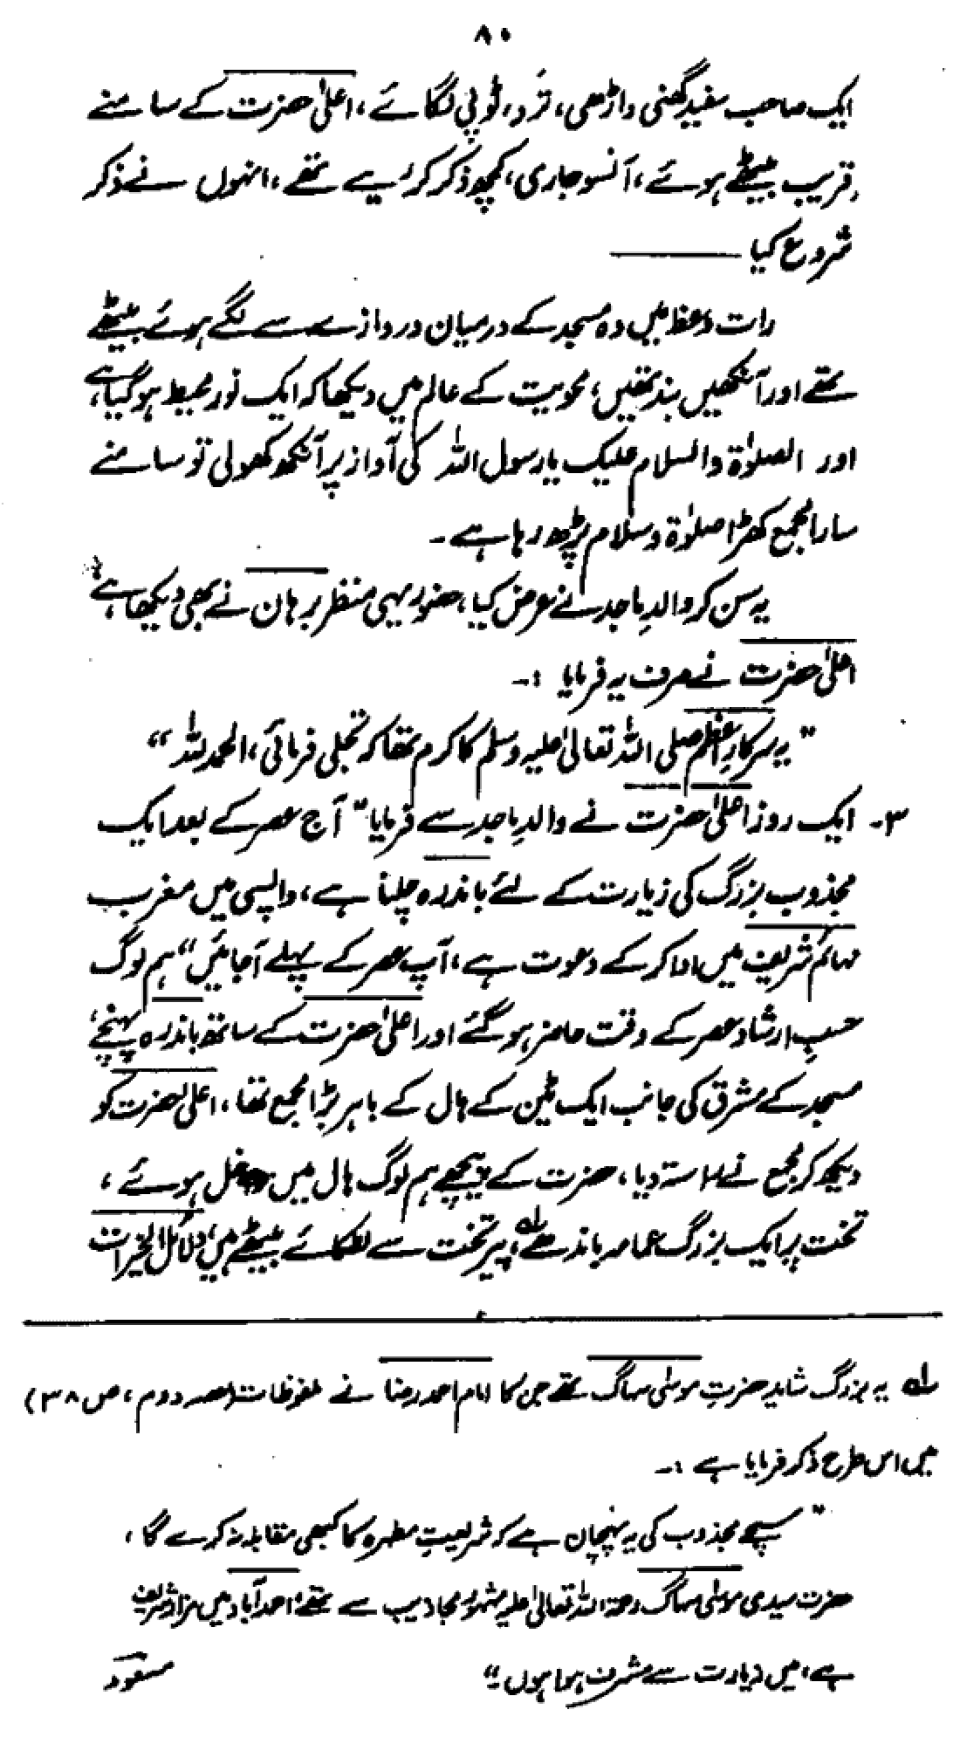 ۸۰
ایک صاحب سفید گھنی داڑھی، ترد، ٹوپی لگائے، اعلیٰ حضرت کے سامنے
قریب بیٹھے ہوئے، آنسو جاری، کچھ ذکر کر رہے تھے، انہوں نے ذکر
شروع کیا ———
رات وعظ میں وہ مسجد کے درمیان دروازے سے لگے ہوئے بیٹھے
تھے اور آنکھیں بند تھیں، محویت کے عالم میں دیکھا کہ ایک نور محیط ہو گیا ہے
اور الصلوٰۃ والسلام علیک یا رسول اللہ کی آواز پر آنکھ کھولی تو سامنے
سارا مجمع کھڑا صلوٰۃ و سلام پڑھ رہا ہے۔
یہ سن کر والدِ ماجد نے عرض کیا، حضور یہی منظر برہان نے بھی دیکھا ہے
اعلیٰ حضرت نے صرف یہ فرمایا :۔
"یہ سرکارِ اعظم صلی اللہ تعالیٰ علیہ وسلم کا کرم تھا کہ تجلی فرمائی، الحمد للہ"
۳۔ ایک روز اعلیٰ حضرت نے والدِ ماجد سے فرمایا "آج عصر کے بعد ایک
مجذوب بزرگ کی زیارت کے لئے باندرہ چلنا ہے، واپسی میں مغرب
مہائم شریف میں ادا کر کے دعوت ہے، آپ عصر کے پہلے آجائیں" ہم لوگ
حسبِ ارشاد عصر کے وقت حاضر ہو گئے اور اعلیٰ حضرت کے ساتھ باندرہ پہنچے،
مسجد کے مشرق کی جانب ایک ٹین کے ہال کے باہر بڑا مجمع تھا، اعلیٰ حضرت کو
دیکھ کر مجمع نے راستہ دیا، حضرت کے پیچھے ہم لوگ ہال میں داخل ہوئے،
تخت پر ایک بزرگ عمامہ باندھے ۱؎، پیر تخت سے لٹکائے بیٹھے ہیں، دلائل الخیرات
۱؎ یہ بزرگ شاید حضرتِ موسیٰ سہاگ تھے جن کا امام احمد رضا نے ملفوظات (حصہ دوم، ص ۳۸)
میں اس طرح ذکر فرمایا ہے :۔
"سچے مجذوب کی یہ پہچان ہے کہ شریعتِ مطہرہ کا کبھی مقابلہ نہ کرے گا،
حضرت سیدی موسیٰ سہاگ رحمۃ اللہ تعالیٰ علیہ مشہور مجاذیب سے تھے، احمد آباد میں مزار شریف
ہے، میں زیارت سے مشرف ہوا ہوں۔" مسعود